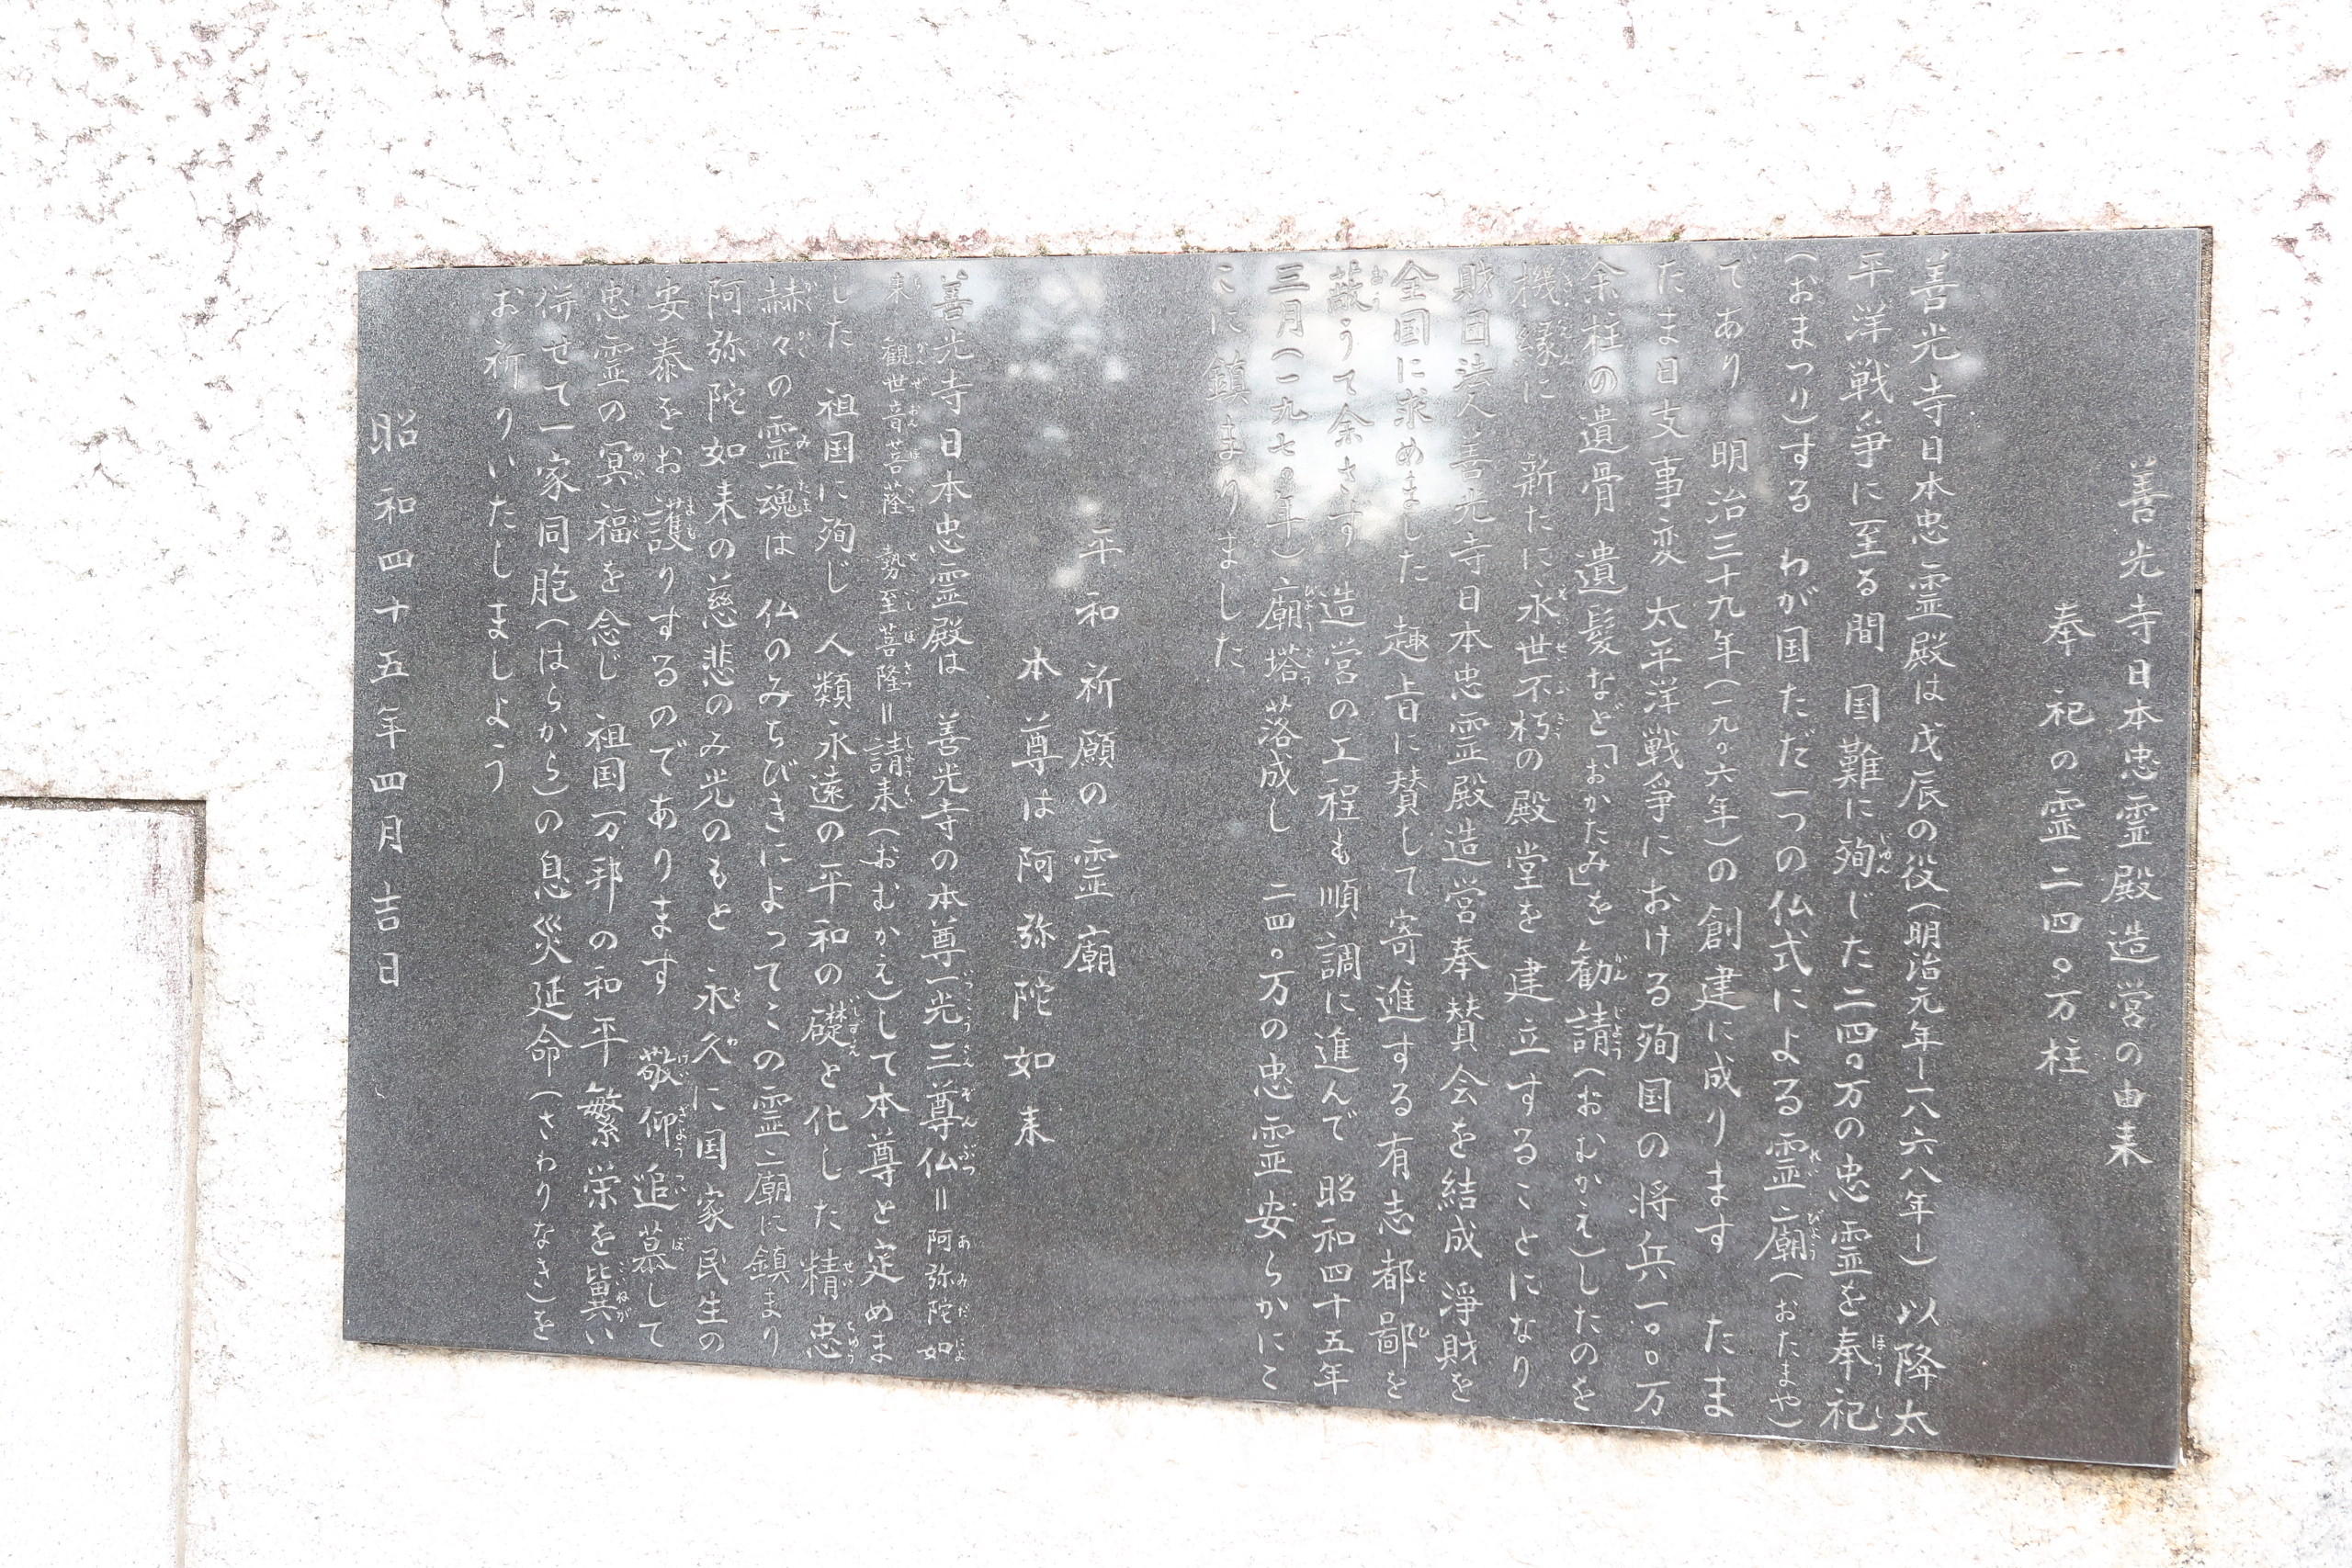 善光寺日本忠霊殿造営の由来
奉祀の霊二四〇万柱
善光寺日本忠霊殿は戊辰の役(明治元年ー一八六八年ー)以降太
平洋戦争に至る間 国難に殉じた二四〇万の忠霊を奉祀
(おまつり)する わが国ただ一つの仏式による霊廟(おたまや)
であり 明治三十九年(一九〇六年)の創建に成ります たま
たま日支事変 太平洋戦争における殉国の将兵一〇〇万
余柱の遺骨 遺髪など「おかたみ」を勧請(おむかえ)したのを
機縁に 新たに永世不朽の殿堂を建立することになり
財団法人善光寺日本忠霊殿造営奉賛会を結成 淨財を
全国に求めました 趣旨に賛して寄進する有志都鄙を
蔽うて余さず 造営の工程も順調に進んで 昭和四十五年
三月(一九七〇年)廟塔落成し 二四〇万の忠霊安らかにこ
こに鎮まりました
平和祈願の霊廟
本尊は阿弥陀如来
善光寺日本忠霊殿は 善光寺の本尊一光三尊仏=阿弥陀如
来 観世音菩薩 勢至菩薩=請来(おむかえ)して本尊と定めま
した 祖国に殉じ 人類永遠の平和の礎と化した精忠
赫々の霊魂は 仏のみちびきによってこの霊廟に鎮まり
阿弥陀如来の慈悲のみ光のもと 永久に国家民生の
安泰をお護りするのであります 敬仰追慕して
忠霊の冥福を念じ 祖国万邦の和平繁栄を冀い
併せて一家同胞(はらから)の息災延命(さわりなき)を
お祈りいたしましよう
昭和四十五年四月吉日